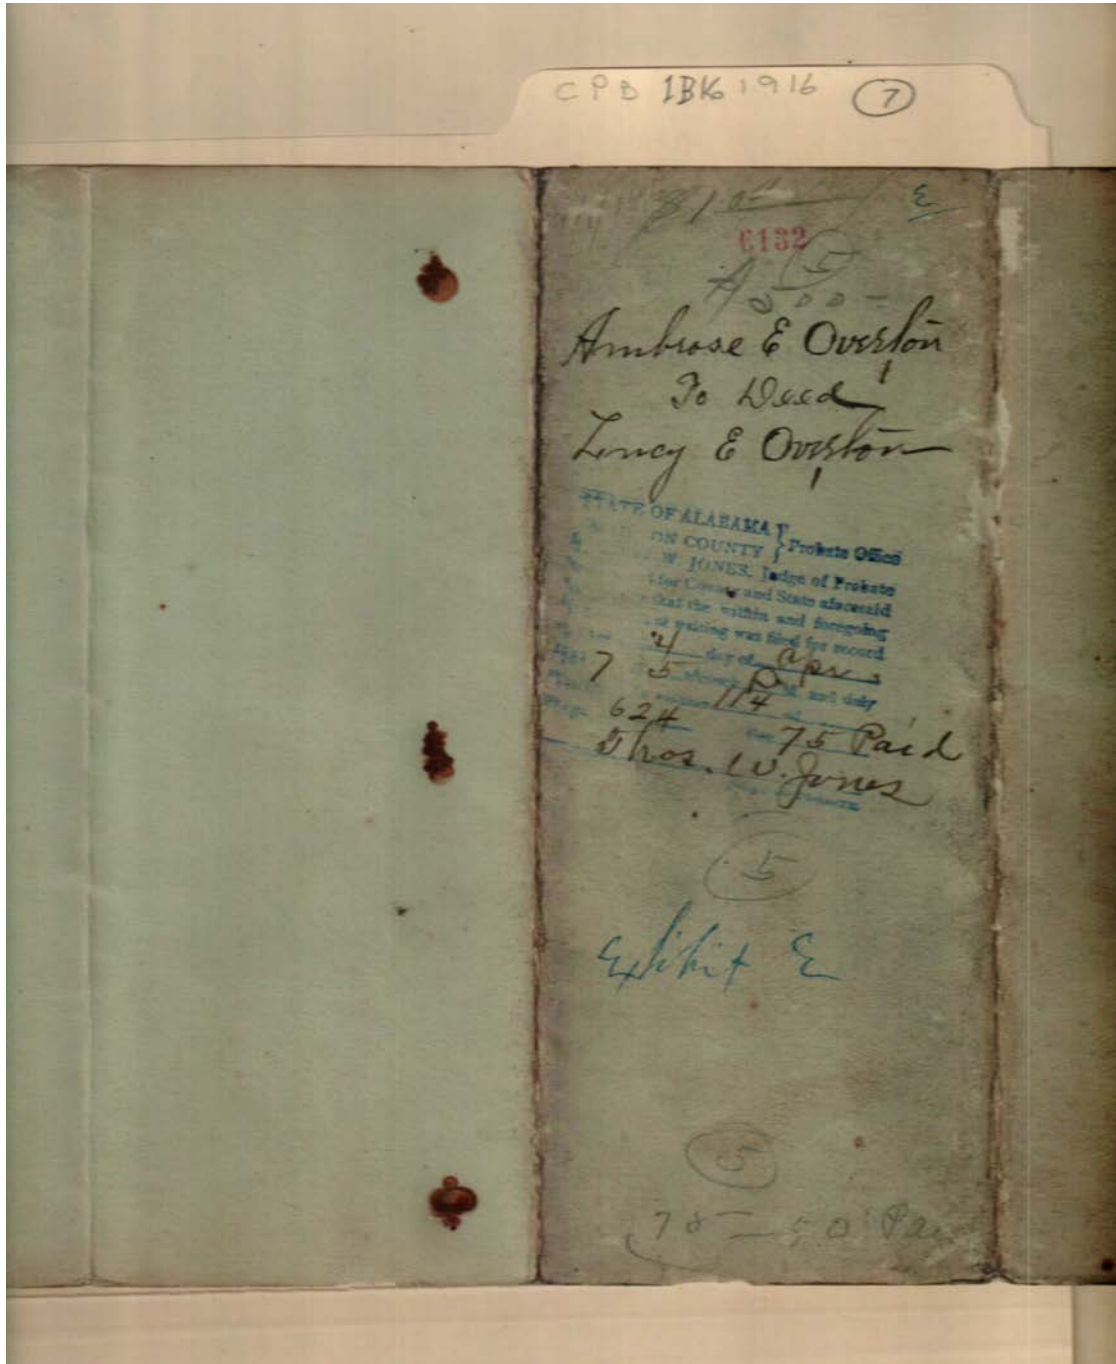 CPB IBK 1916 7
E
6132
5
Ambrose E Overton
To Deed
Lucy E Overton
STATE OF ALABAMA
ON COUNTY } Probate Office
W. JONES, Judge of Probate
for County and State aforesaid
that the within and foregoing
writing was filed for record
4 day of Apr
7 5 P M. and duly
114
624 75 Paid
Thos. W. Jones
5
Exhibit E
5
75 — 50 Pa